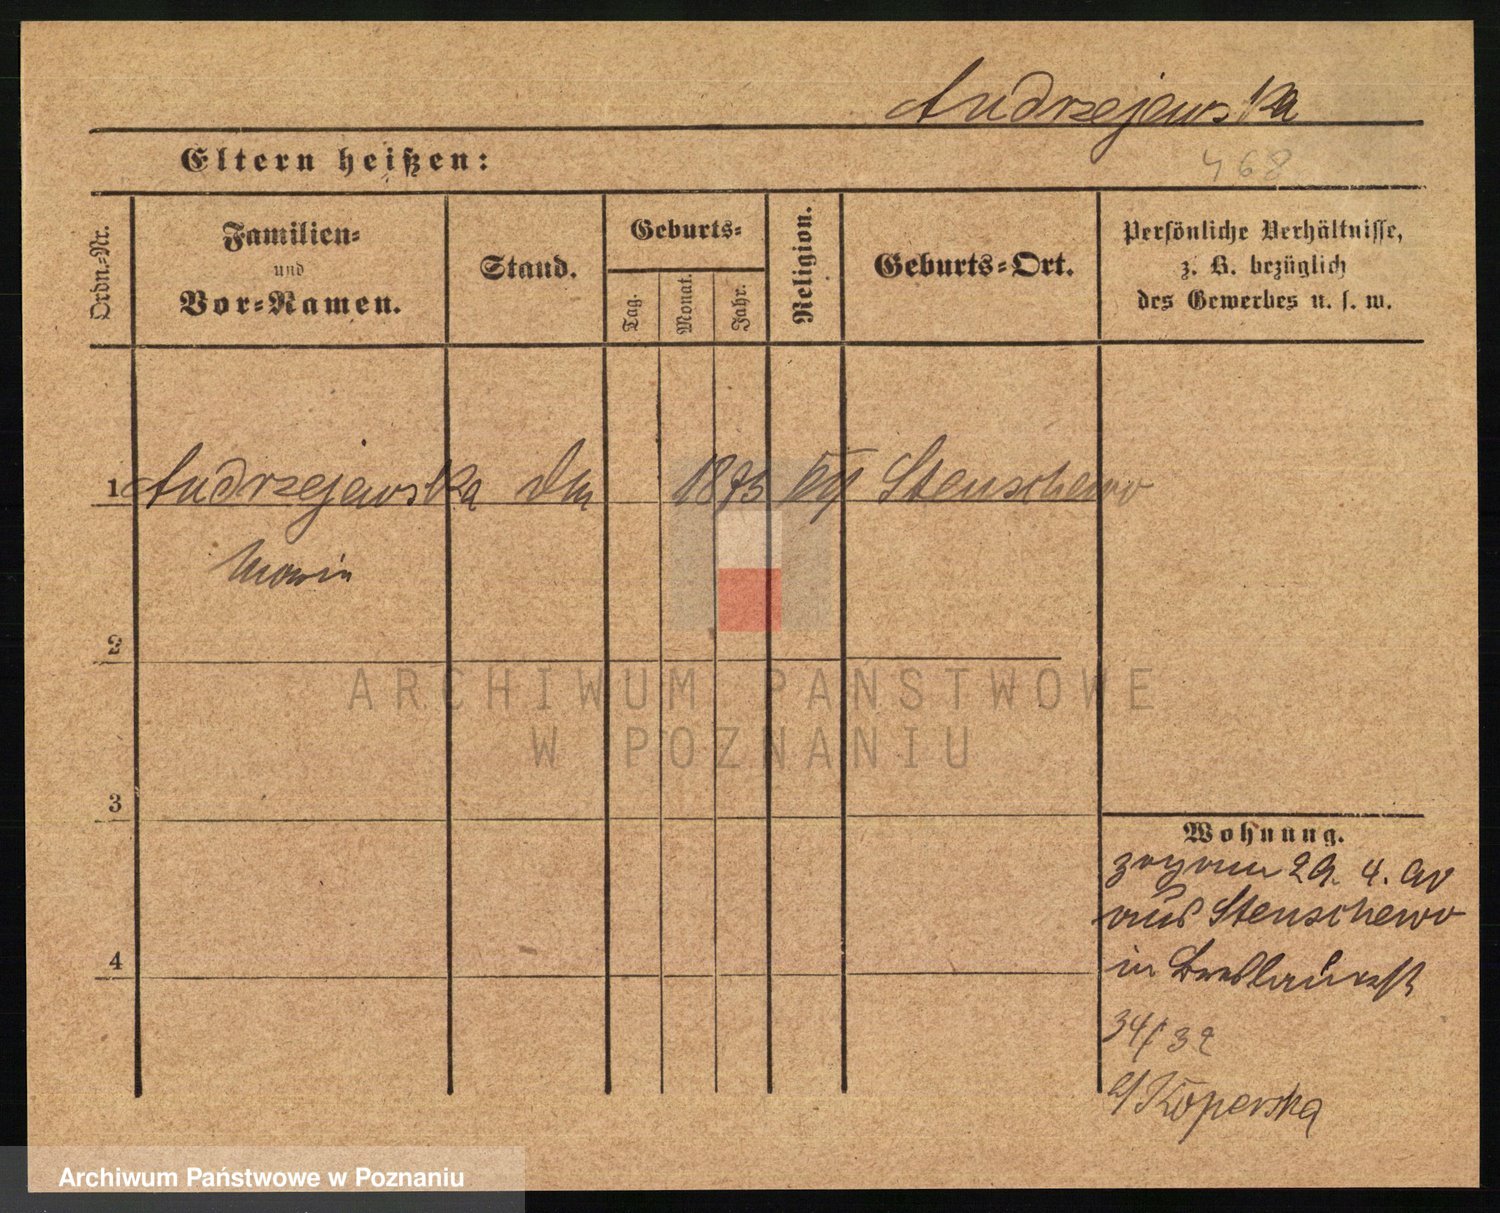 Andrzejewska
468
Eltern heißen:
Ordn.-Nr.
Familien-
und
Vor-Namen.
Stand.
Geburts-
Tag.
Monat.
Jahr.
Religion.
Geburts-Ort.
Persönliche Verhältnisse,
z. B. bezüglich
des Gewerbes u. s. w.
1 Andrzejewska 1875 Stenschewo
Maria
2
3
4
Wohnung.
29. 4. 90
aus Stenschewo
in Breslauerstr
34/32
b/ Koperska
ARCHIWUM PAŃSTWOWE
W POZNANIU
Archiwum Państwowe w Poznaniu